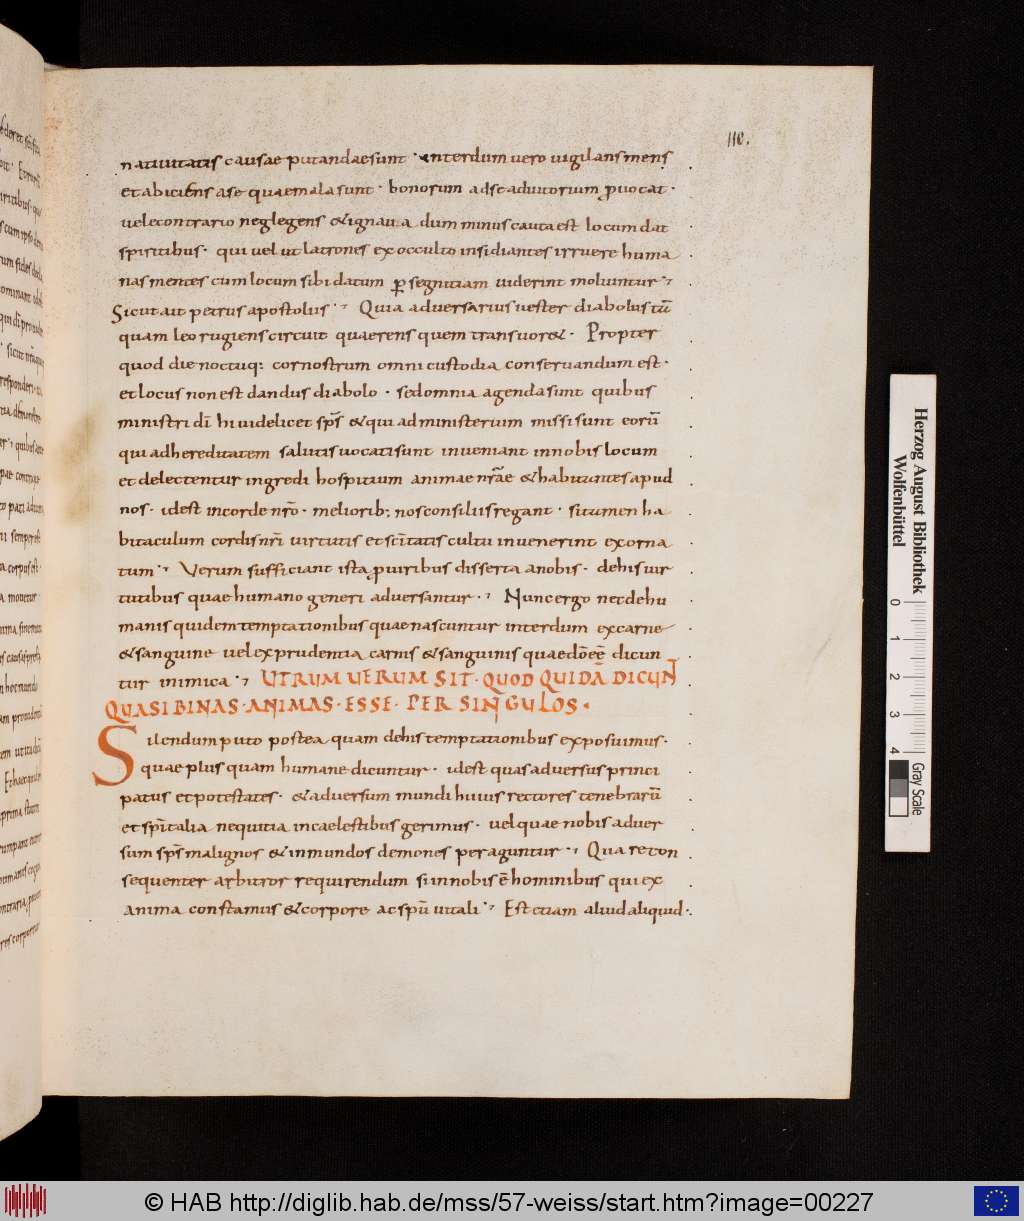 110.
natiuitatis causae putandae sunt · interdum uero uigilans mens
et abiciens a se quae mala sunt · bonorum ad se adiutorium ꝓuocat ·
uel e contrario neglegens & ignaua dum minus cauta est locum dat
spiritibus · qui uel ut latrones ex occulto insidiantes irruere huma
nas mentes cum locum sibi datum ꝑ segnitiam uiderint moliuntur ·,
Sicut ait petrus apostolus ·, Quia aduersarius uester diabolus tū
quam leo rugiens circuit quaerens quem transuor& · Propter
quod die noctuq; cor nostrum omni custodia conseruandum est ·
et locus non est dandus diabolo · sed omnia agenda sunt quibus
ministri dī hi uidelicet sp̄s & qui ad ministerium missi sunt eorū
qui ad hereditatem salutis uocati sunt inueniant in nobis locum
et delectentur ingredi hospitium animae nr̄ae & habitantes apud
nos · id est in corde nr̄o · meliorib; nos consiliis regant · si tamen ha
bitaculum cordis nr̄i uirtutis et sc̄itatis cultu inuenerint exorna
tum ·, Verum sufficiant ista ꝓ uiribus disserta a nobis · de his uir
tutibus quae humano generi aduersantur ·, Nunc ergo nec de hu
manis quidem temptationibus quae nascuntur interdum ex carne
& sanguine uel ex prudentia carnis & sanguinis quae dō eē dicun
tur inimica ·, UTRUM UERUM SIT · QUOD QUIDĀ DICUN̄
QUASI BINAS · ANIMAS · ESSE · PER SINGULOS ·
Silendum puto postea quam de his temptationibus exposuimus ·
quae plus quam humane dicuntur · id est quas aduersus princi
patus et potestates · & aduersum mundi huius rectores tenebrarū
et sp̄italia nequitia in caelestibus gerimus · uel quae nobis aduer
sum sp̄s malignos & inmundos demones peraguntur ·, Qua re con
sequenter arbitror requirendum si in nobis ē hominibus qui ex
anima constamus & corpore ac spū uitali ·, Est etiam aliud aliquid ·
Herzog August Bibliothek
Wolfenbüttel
0 1 2 3 4
Gray Scale
© HAB http://diglib.hab.de/mss/57-weiss/start.htm?image=00227